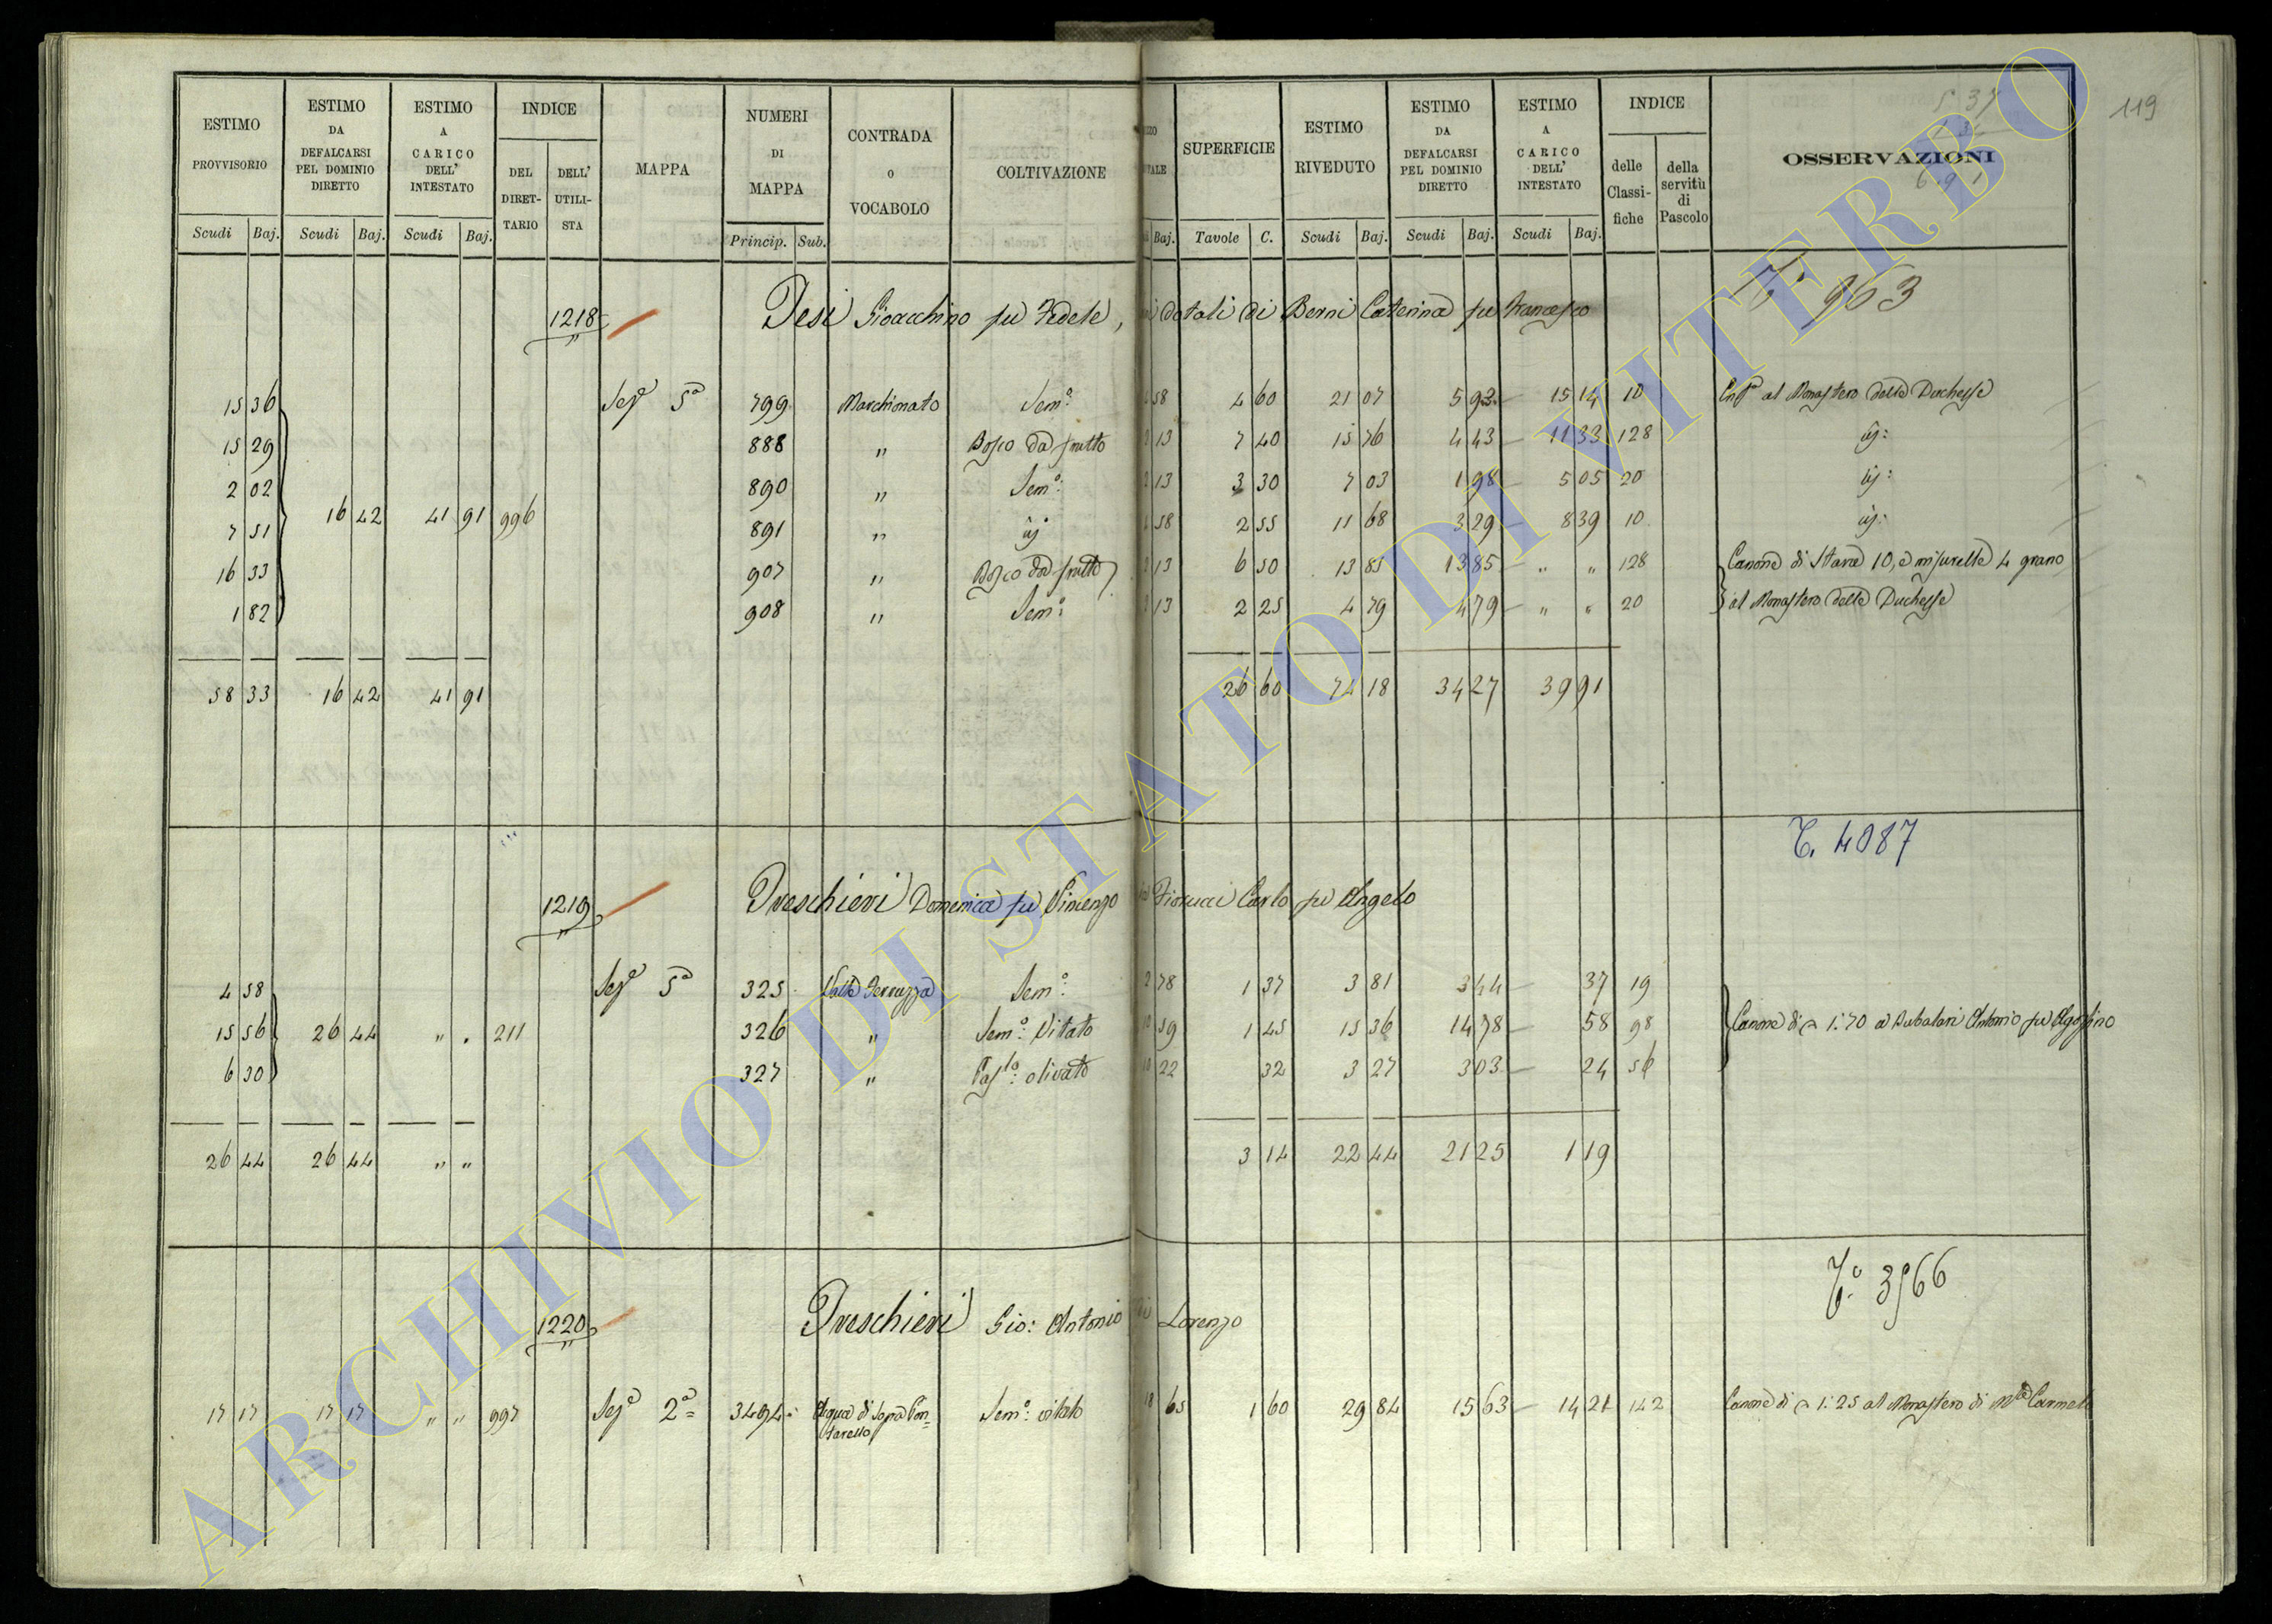 119
5 37
ESTIMO PROVVISORIO Scudi Baj. ESTIMO DA DEFALCARSI PEL DOMINIO DIRETTO Scudi Baj. ESTIMO A CARICO DELL' INTESTATO Scudi Baj. INDICE DEL DIRETTARIO DELL' UTILISTA MAPPA NUMERI DI MAPPA Princip. Sub. CONTRADA O VOCABOLO COLTIVAZIONE Baj. SUPERFICIE Tavole C. ESTIMO RIVEDUTO Scudi Baj. ESTIMO DA DEFALCARSI PEL DOMINIO DIRETTO Scudi Baj. ESTIMO A CARICO DELL' INTESTATO Scudi Baj. INDICE delle Classifiche della servitù di Pascolo OSSERVAZIONI
T. 963
1218 Tesi Gioacchino fu Fedele, dotali di Berni Caterina fu Francesco
15 36 Sez.e 5a 799 Marchionato Sem.o 58 4 60 21 07 5 93 15 14 10 al Monastero della Duchessa
15 29 888 " Bosco da frutto 13 7 40 15 76 4 43 11 33 128 id:
2 02 890 " Sem.o 13 3 30 7 03 1 98 5 05 20 id:
7 51 16 42 41 91 996 891 " id 58 2 55 11 68 3 29 8 39 10 id:
16 33 907 " Bosco da frutto 13 6 50 13 85 13 85 " " 128 Canone di Stara 10, e misurelle 4 grano
1 82 908 " Sem.o 13 2 25 4 79 4 79 " " 20 al Monastero della Duchessa
58 33 16 42 41 91 26 60 74 18 34 27 39 91
T. 4087
1219 Treschieri Domenica fu Vincenzo Fiorucci Carlo fu Angelo
4 58 Sez.e 5a 325 Valle Sem.o 2 78 1 37 3 81 3 44 37 19
15 56 26 44 " " 211 326 " Sem.o Vitato 10 59 1 45 15 36 14 78 58 98 Canone di 1:70 a Antonio fu Agostino
6 30 327 " Pas.lo olivato 10 22 32 3 27 3 03 24 56
26 44 26 44 " " 3 14 22 44 21 25 1 19
T.o 3566
1220 Treschieri Gio: Antonio di Lorenzo
17 17 17 17 " " 997 Sez.e 2a 3494 Acqua di Sopra Sem.o vitato 18 65 1 60 29 84 15 63 14 21 142 Canone di 1:25 al Monastero di
ARCHIVIO DI STATO DI VITERBO